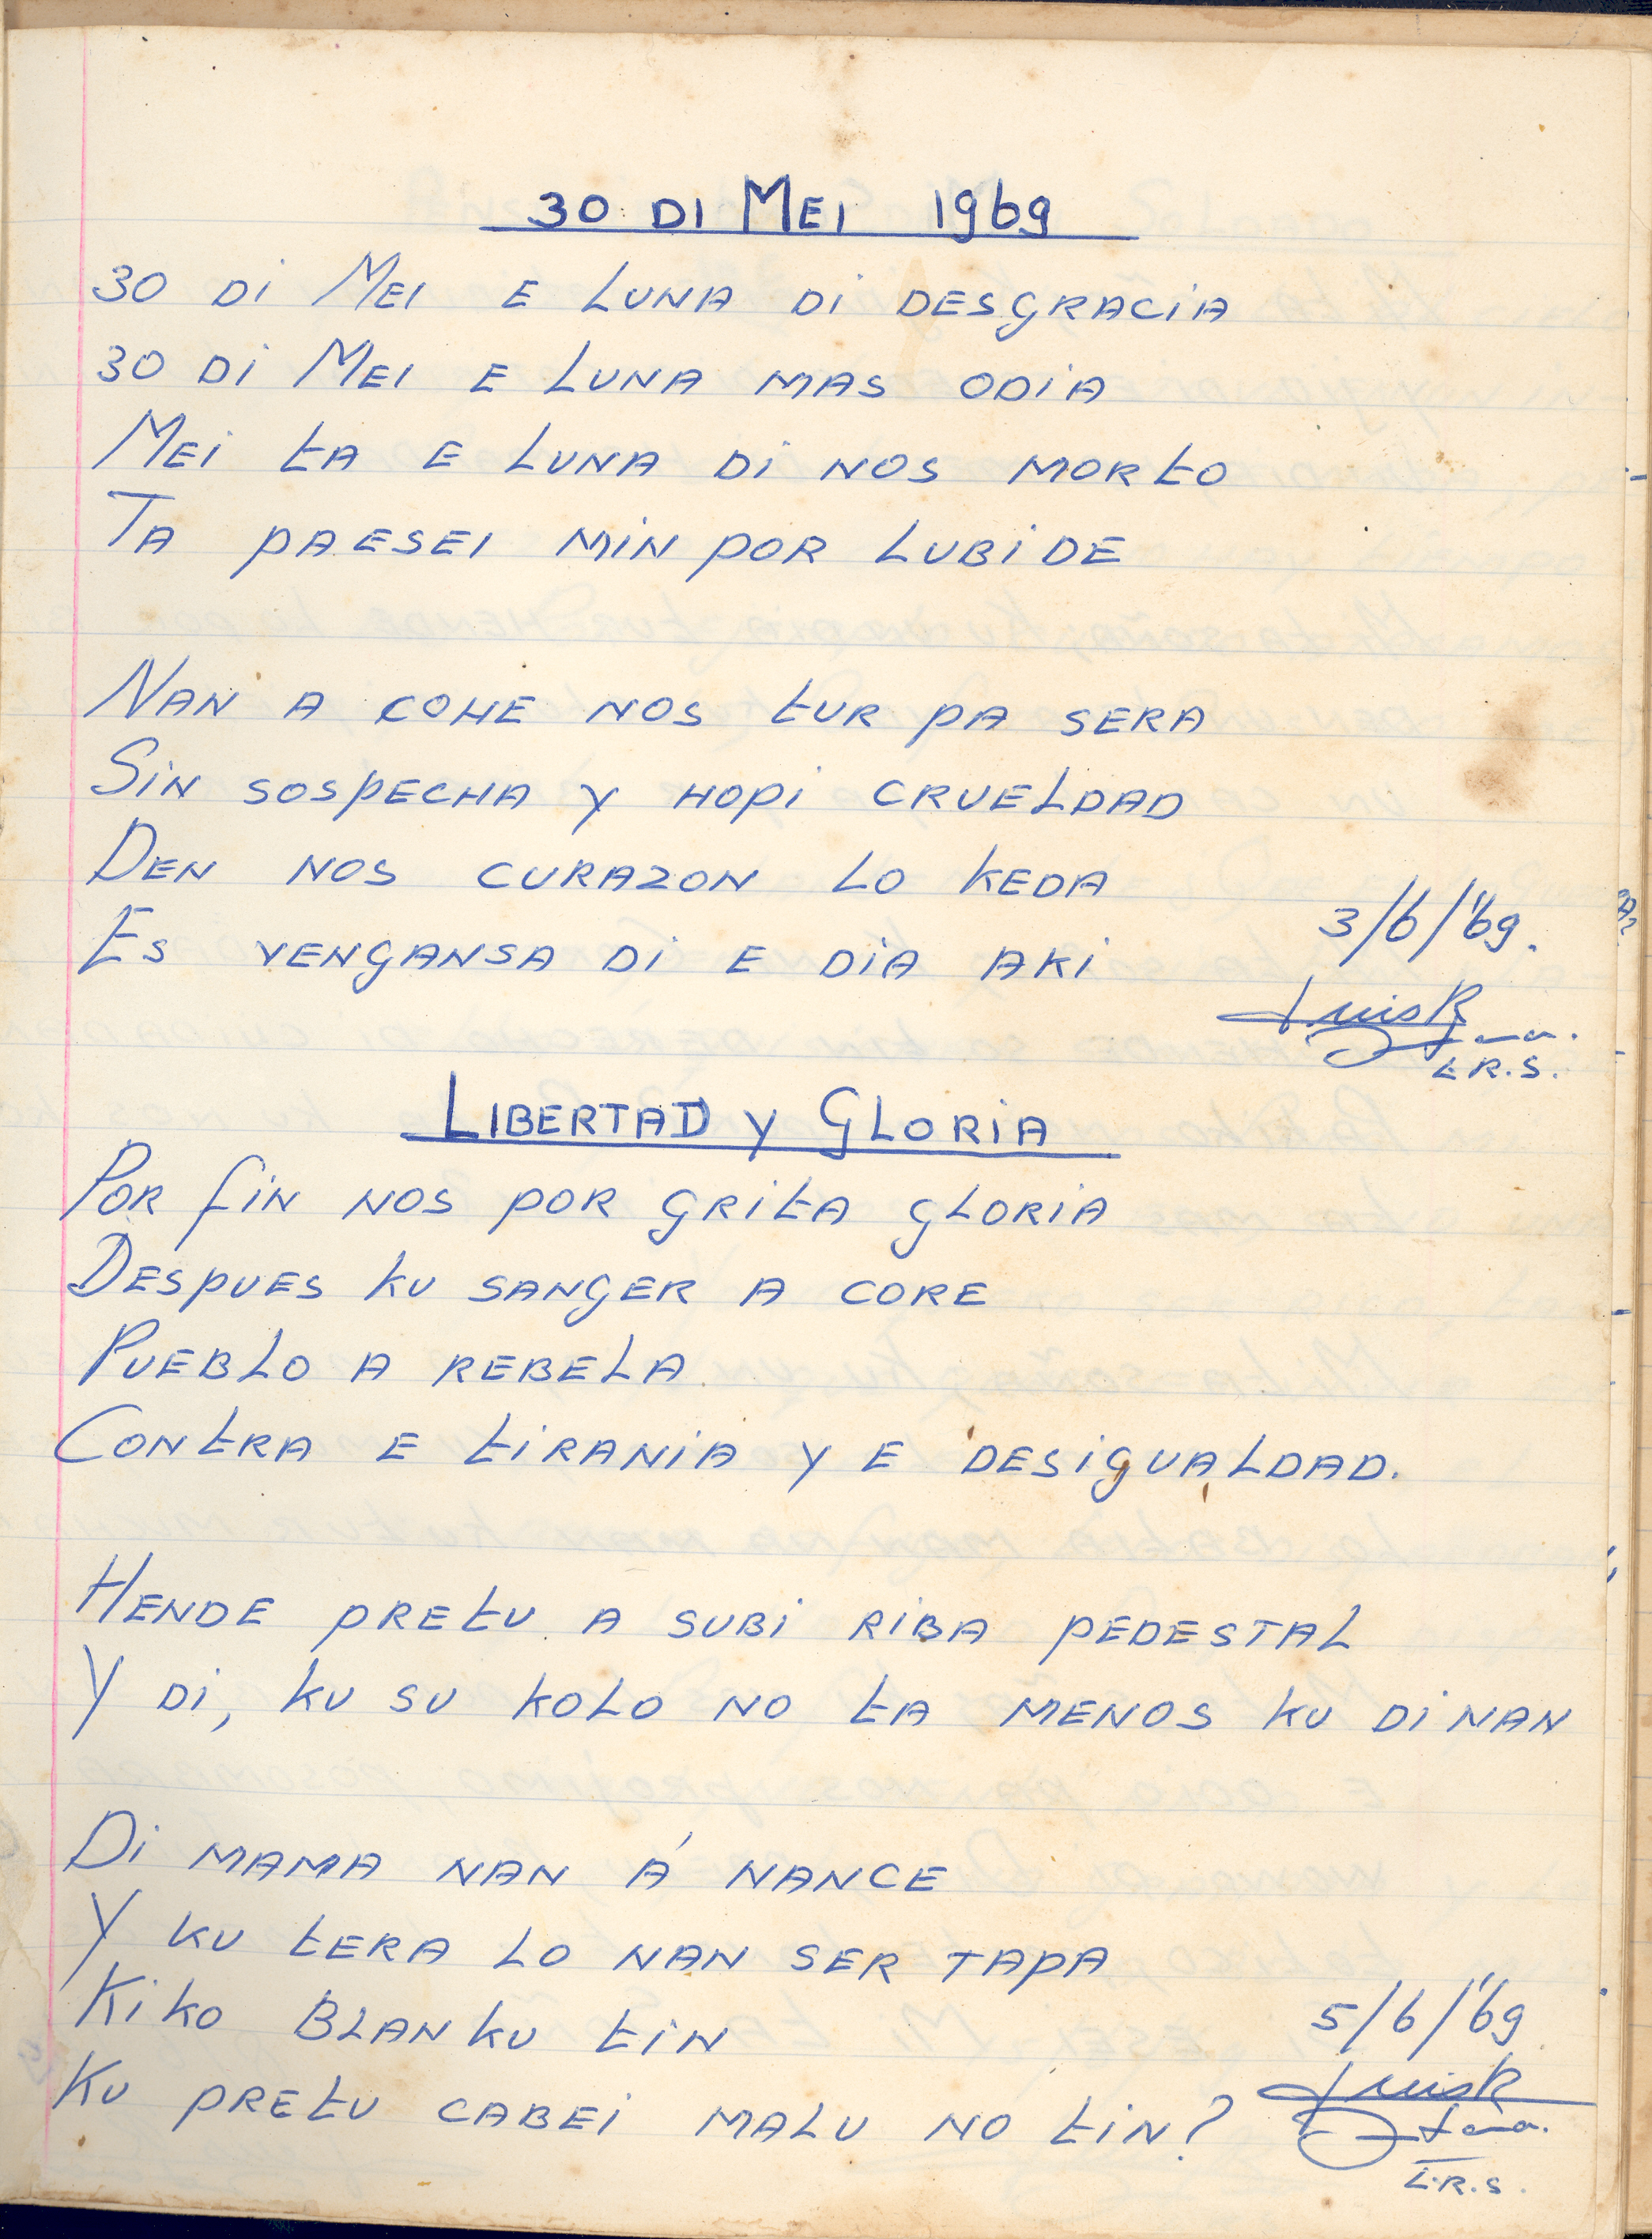 30 DI MEI 1969
30 DI MEI E LUNA DI DESGRACIA
30 DI MEI E LUNA MAS ODIA
MEI TA E LUNA DI NOS MORTO
TA PAESEI MIN POR LUBIDE
NAN A COHE NOS TUR PA SERA
SIN SOSPECHA Y HOPI CRUELDAD
DEN NOS CURAZON LO KEDA
ES VENGANSA DI E DIA AKI
3/6/'69.
Luis R
L.R.S.
LIBERTAD Y GLORIA
POR FIN NOS POR GRITA GLORIA
DESPUES KU SANGER A CORE
PUEBLO A REBELA
CONTRA E TIRANIA Y E DESIGUALDAD.
HENDE PRETU A SUBI RIBA PEDESTAL
Y DI, KU SU KOLO NO TA MENOS KU DI NAN
DI MAMA NAN Á NANCE
Y KU TERA LO NAN SER TAPA
KIKO BLANKU TIN
KU PRETU CABEI MALU NO TIN?
5/6/'69
Luis R
L.R.S.